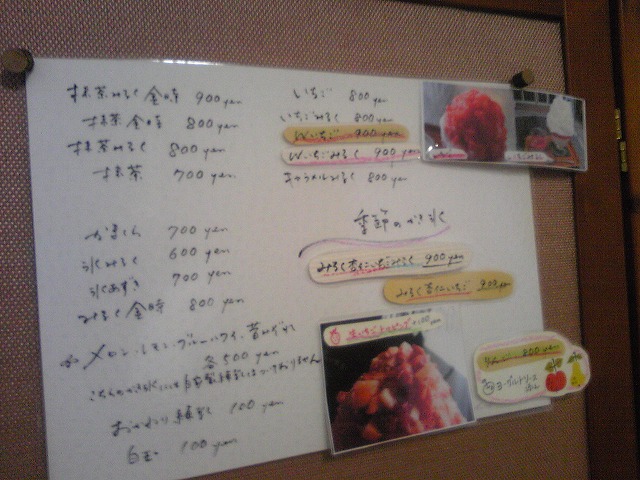 抹茶みるく金時 900 yen
抹茶金時 800 yen
抹茶みるく 800 yen
抹茶 700 yen
700 yen
氷みるく 600 yen
氷あずき 700 yen
みるく金時 800 yen
メロン・レモン・ブルーハワイ・昔みぞれ
各500 yen
こちらのかき氷には自家製練乳はついておりません
おかわり練乳 100 yen
白玉 100 yen
いちご 800 yen
いちごみるく 800 yen
Wいちご 900 yen
Wいちごみるく 900 yen
キャラメルみるく 800 yen
いちごみるく
季節のかき氷
みるく杏仁いちごみるく 900 yen
みるく杏仁いちご 900
生いちごトッピング +100 yen
800 yen
ヨーグルトソース